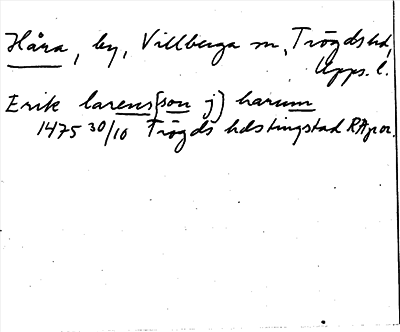 Håra, by, Villberga sn, Trögds hd,
Upps. l.
Erik larens(son j) harum
1475 30/10 Trögds hdstingstad RAp or.